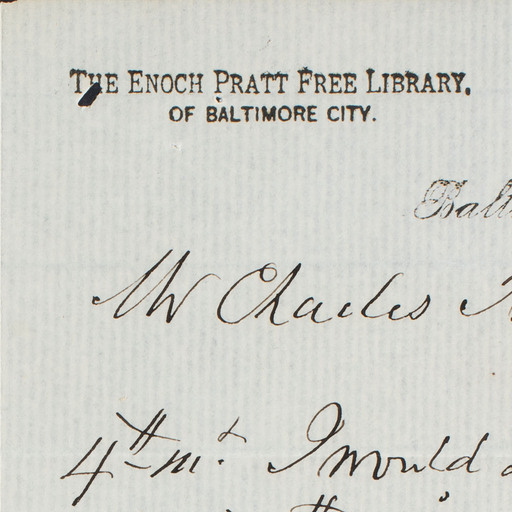 THE ENOCH PRATT FREE LIBRARY,
OF BALTIMORE CITY.
Balt
Mr Charles
4th inst. I would